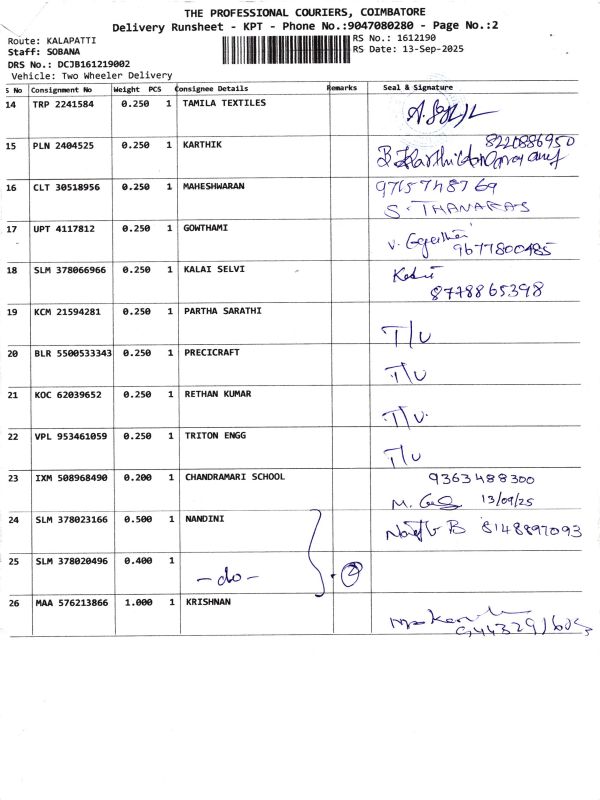 THE PROFESSIONAL COURIERS, COIMBATORE
Delivery Runsheet - KPT - Phone No.:9047080280 - Page No.:2
Route: KALAPATTI
RS No.: 1612190
Staff: SOBANA
RS Date: 13-Sep-2025
DRS No.: DCJB161219002
Vehicle: Two Wheeler Delivery
S No Consignment No Weight PCS Consignee Details Remarks Seal & Signature
14 TRP 2241584 0.250 1 TAMILA TEXTILES
15 PLN 2404525 0.250 1 KARTHIK
8220886950
16 CLT 30518956 0.250 1 MAHESHWARAN 9765748769
S. THANARAS
17 UPT 4117812 0.250 1 GOWTHAMI
9677800485
18 SLM 378066966 0.250 1 KALAI SELVI
8778865398
19 KCM 21594281 0.250 1 PARTHA SARATHI
T/U
20 BLR 5500533343 0.250 1 PRECICRAFT
T/U
21 KOC 62039652 0.250 1 RETHAN KUMAR
T/U.
22 VPL 953461059 0.250 1 TRITON ENGG
T/U
23 IXM 508968490 0.200 1 CHANDRAMARI SCHOOL 9363488300
13/09/25
24 SLM 378023166 0.500 1 NANDINI
B 8148897093
25 SLM 378020496 0.400 1
-do- 2
26 MAA 576213866 1.000 1 KRISHNAN